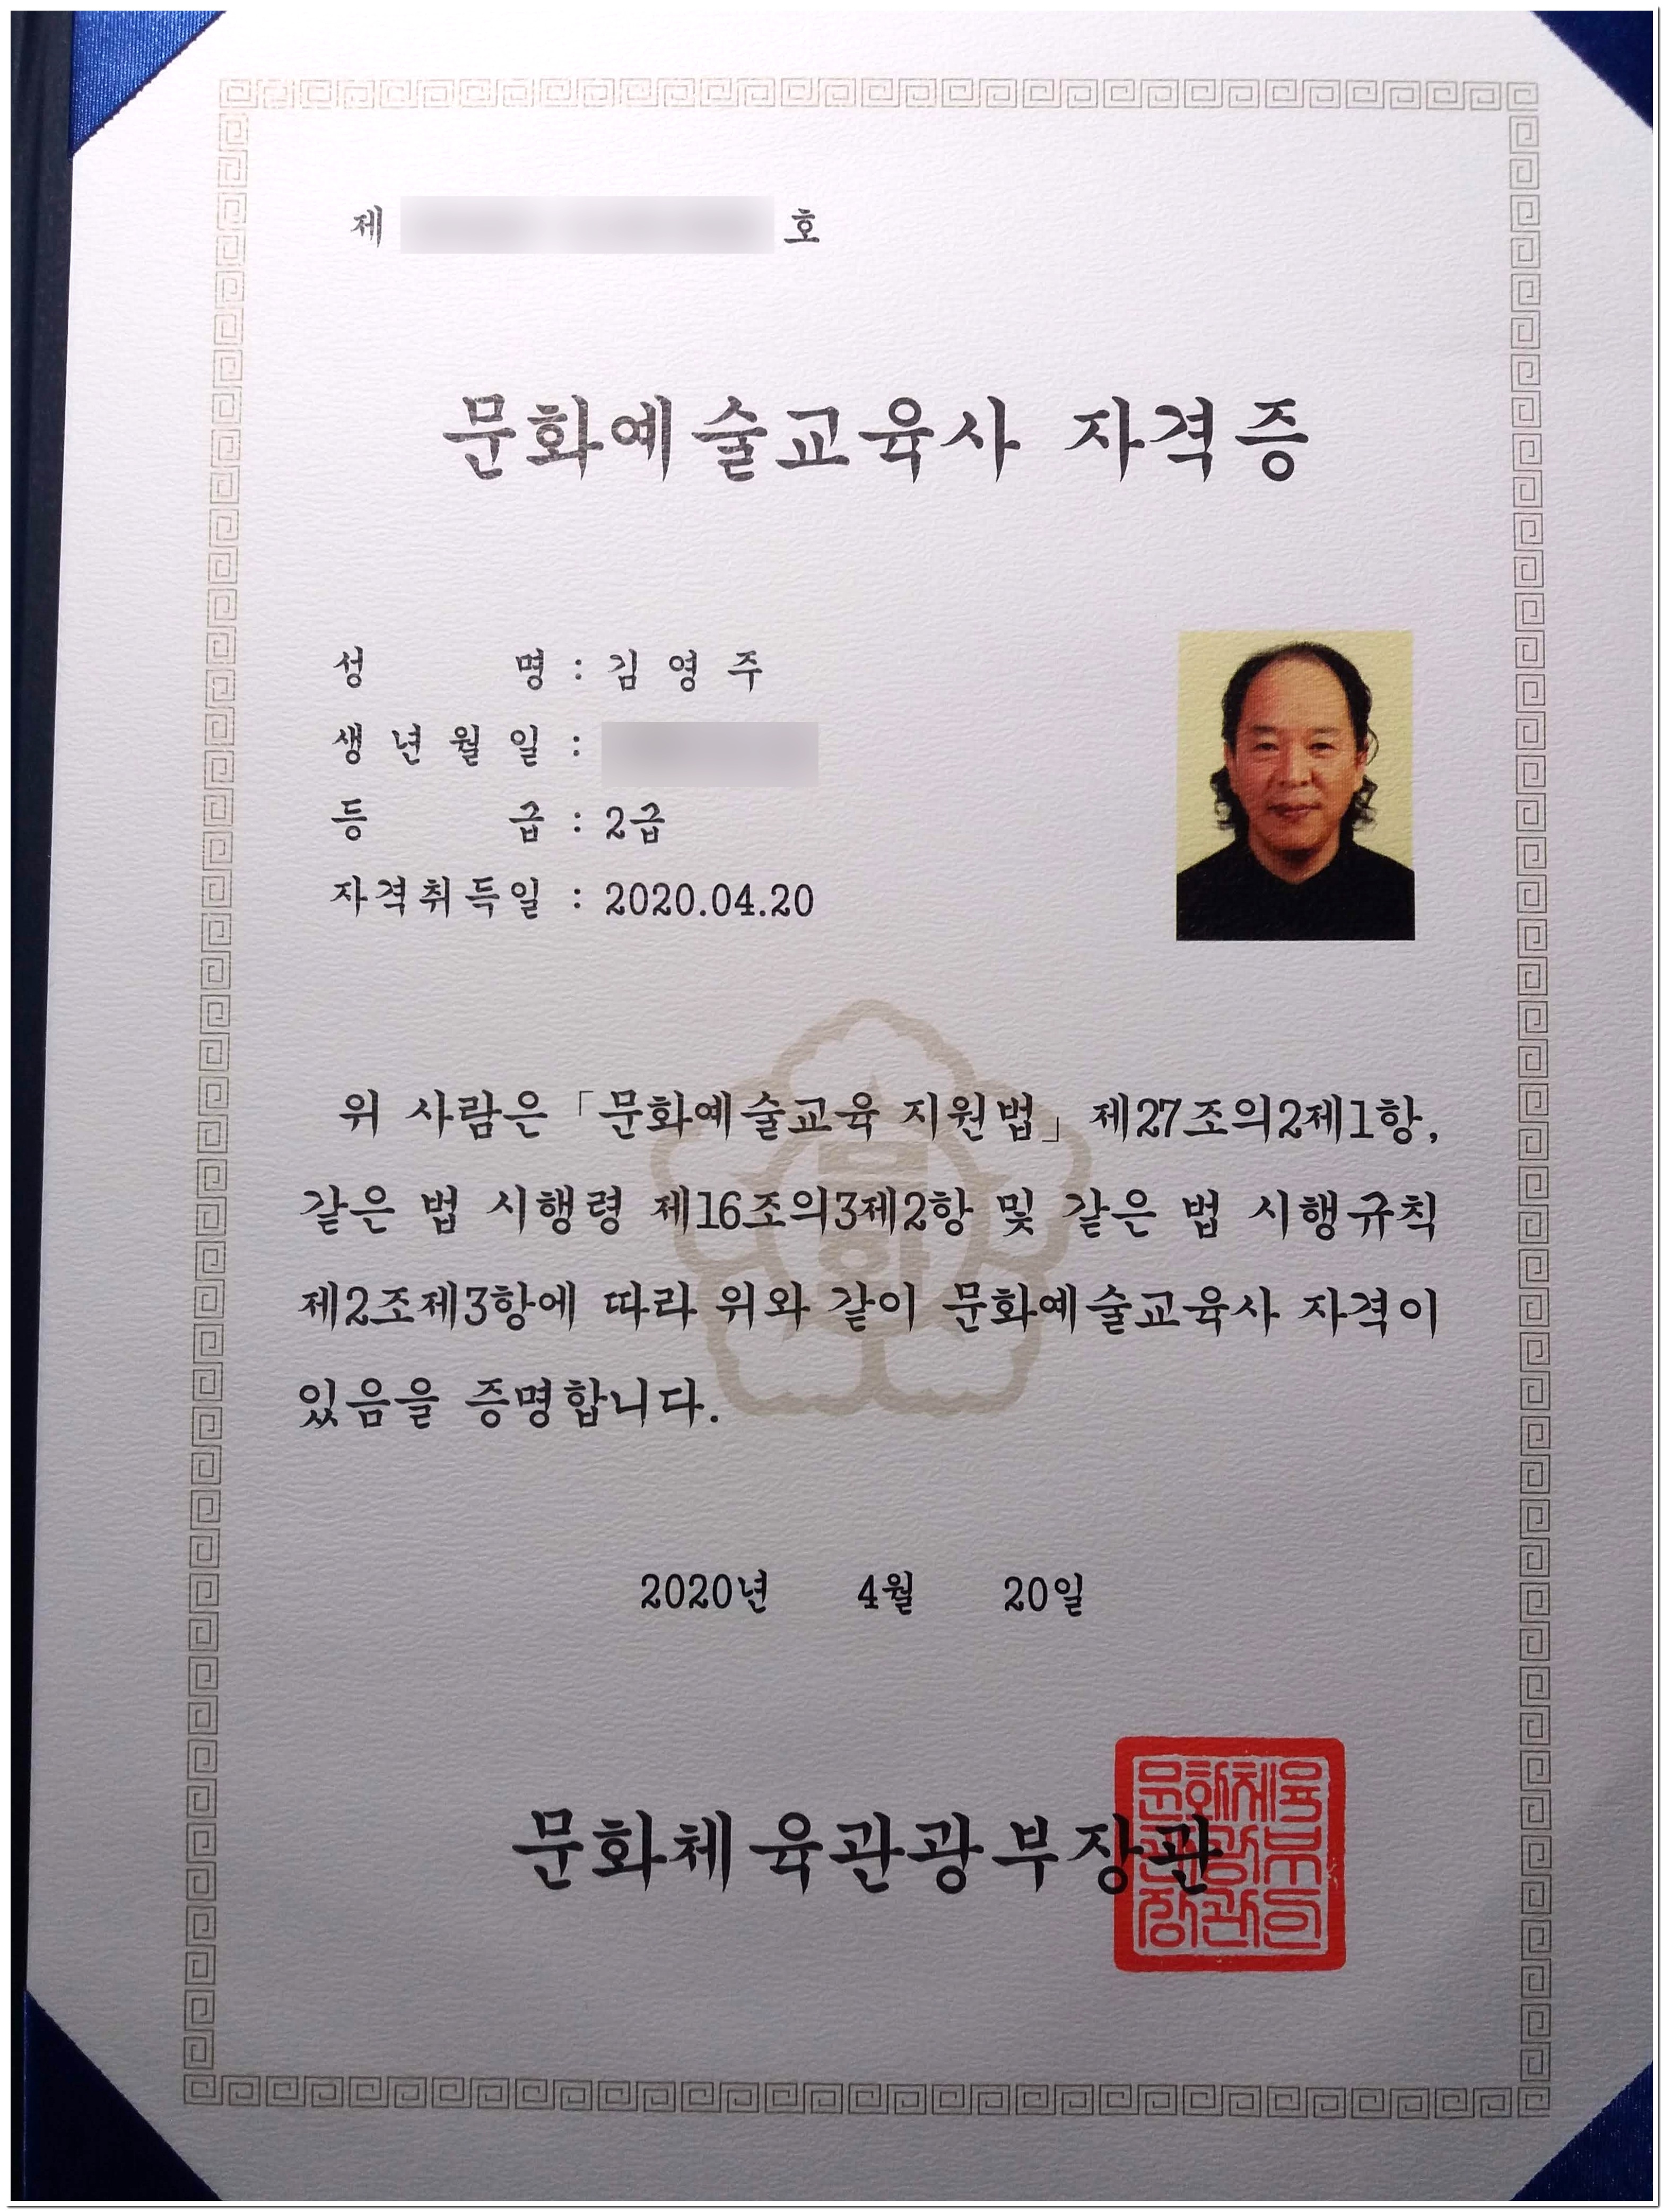 제 호
문화예술교육사 자격증
성 명 : 김 영 주
생 년 월 일 :
등 급 : 2급
자격취득일 : 2020.04.20
위 사람은 「문화예술교육 지원법」 제27조의2제1항,
같은 법 시행령 제16조의3제2항 및 같은 법 시행규칙
제2조제3항에 따라 위와 같이 문화예술교육사 자격이
있음을 증명합니다.
2020년 4월 20일
문화체육관광부장관
문화체육
관광부
장관인